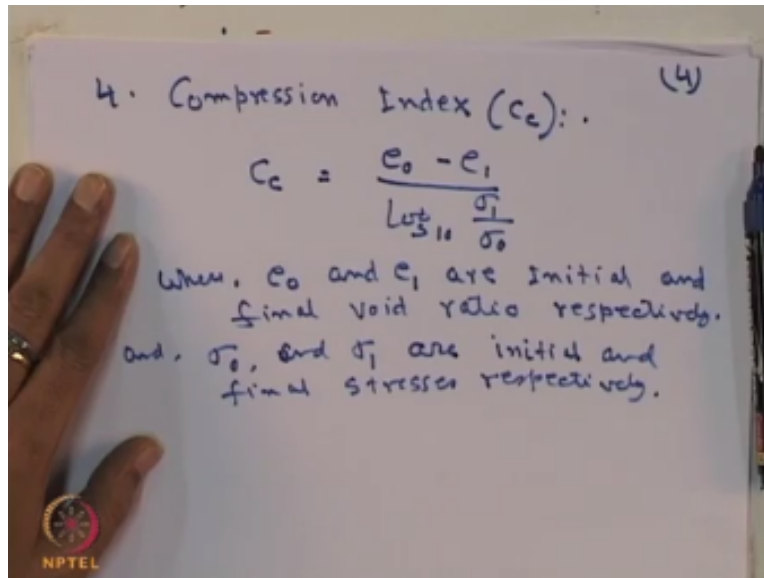 (4)
4. Compression Index (Cc):.
Cc = e0 - e1 / log10 σ1/σ0
where, e0 and e1 are Initial and
final void ratio respectively.
and, σ0, and σ1 are initial and
final stresses respectively.
NPTEL